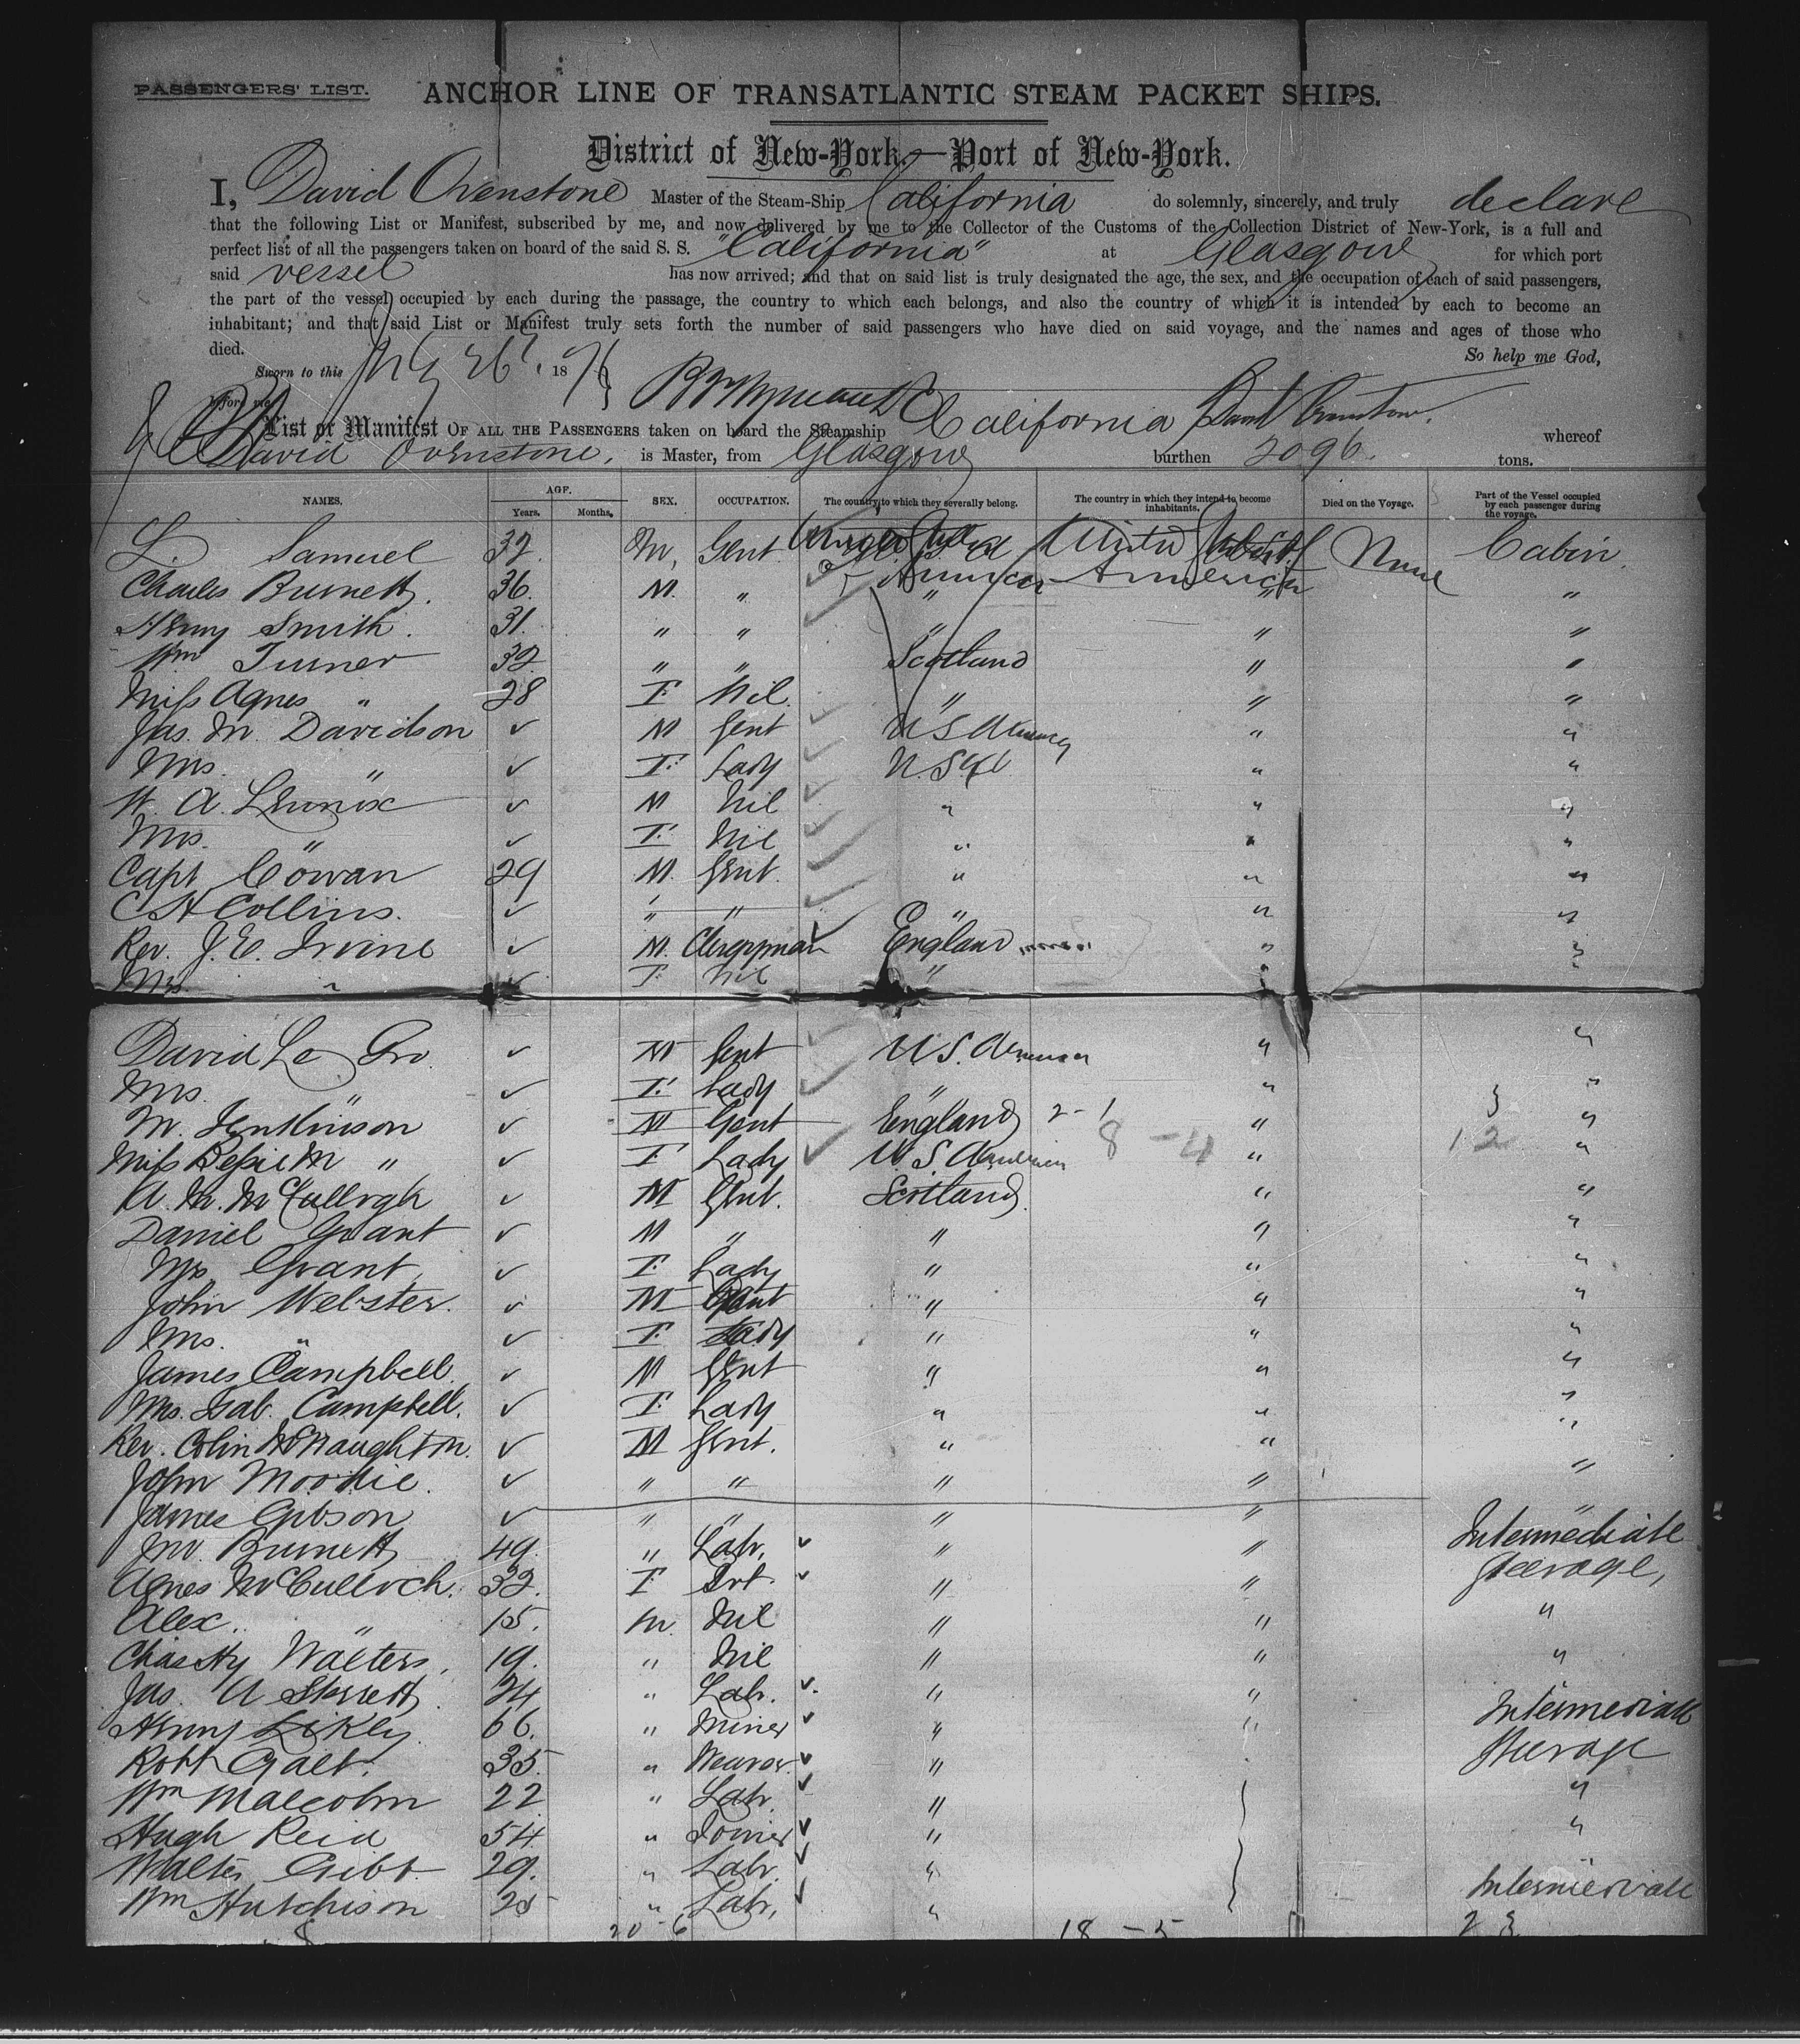 PASSENGERS' LIST.
ANCHOR LINE OF TRANSATLANTIC STEAM PACKET SHIPS.
District of New-York,—Port of New-York.
I, David Ovenstone Master of the Steam-Ship California do solemnly, sincerely, and truly declare
that the following List or Manifest, subscribed by me, and now delivered by me to the Collector of the Customs of the Collection District of New-York, is a full and
perfect list of all the passengers taken on board of the said S. S. "California" at Glasgow for which port
said vessel has now arrived; and that on said list is truly designated the age, the sex, and the occupation of each of said passengers,
the part of the vessel occupied by each during the passage, the country to which each belongs, and also the country of which it is intended by each to become an
inhabitant; and that said List or Manifest truly sets forth the number of said passengers who have died on said voyage, and the names and ages of those who
died. So help me God,
Sworn to this 26 1876
before me
List or Manifest OF ALL THE PASSENGERS taken on board the Steamship California whereof
David Ovenstone, is Master, from Glasgow burthen 2096. tons.
NAMES. AGE. Years. Months. SEX. OCCUPATION. The country to which they severally belong. The country in which they intend to become inhabitants. Died on the Voyage. Part of the Vessel occupied by each passenger during the voyage.
L. Samuel 32 M, Gent. United None Cabin.
Charles Burnett. 36 M. " America America " "
Henry Smith. 31. " " " " "
Wm Turner 32 " " Scotland " "
Miss Agnes " 28 F Nil. " " "
Jas. M. Davidson ✓ M Gent U S America " "
Mrs. " ✓ F. Lady U S A " "
W. A. Lennox ✓ M Nil " " "
Mrs. " ✓ F. Nil " " "
Capt Cowan 29 M. Gent. " " "
C H Collins. ✓ " " " " "
Rev. J. E. Irvine ✓ M. Clergyman England " "
Mrs. " ✓ F. Nil " " "
David Le Gro. ✓ M Gent U S. America " "
Mrs. " ✓ F. Lady " " "
M. Jenkinson ✓ M Gent England 2-1 " 3 "
Miss Bessie M " ✓ F Lady U S America 8-4 " 12 "
A. M. McCullogh ✓ M Gent. Scotland. " "
Daniel Grant ✓ M " " " "
Mrs Grant ✓ F. Lady " " "
John Webster. ✓ M Gent " " "
Mrs. " ✓ F. Lady " " "
James Campbell. ✓ M Gent " " "
Mrs. Isab. Campbell. ✓ F. Lady " " "
Rev. Colin McNaughton. ✓ M Gent. " " "
John Moodie. ✓ " " " " "
James Gibson ✓ " " " " "
Jno. Burnett 49. " Labr. ✓ " " Intermediate
Agnes McCulloch. 32. F ✓ " " Steerage,
Alex. " 15. M. Nil " " "
Chas Hy Walters, 19. " Nil " " "
Jas. A Sterrett. 24 " Labr. ✓ " " Intermediate
Henry Likely 66. " Miner ✓ " " Steerage
Robt Galt. 35. " Weaver. ✓ "
Wm Malcolm 22 " Labr. ✓ " "
Hugh Reid 54. " Joiner ✓ " "
Walter Gibb 29. " Labr. ✓ "
Wm Hutchison 25 " Labr, ✓ " Intermediate
20-6 18-5 23